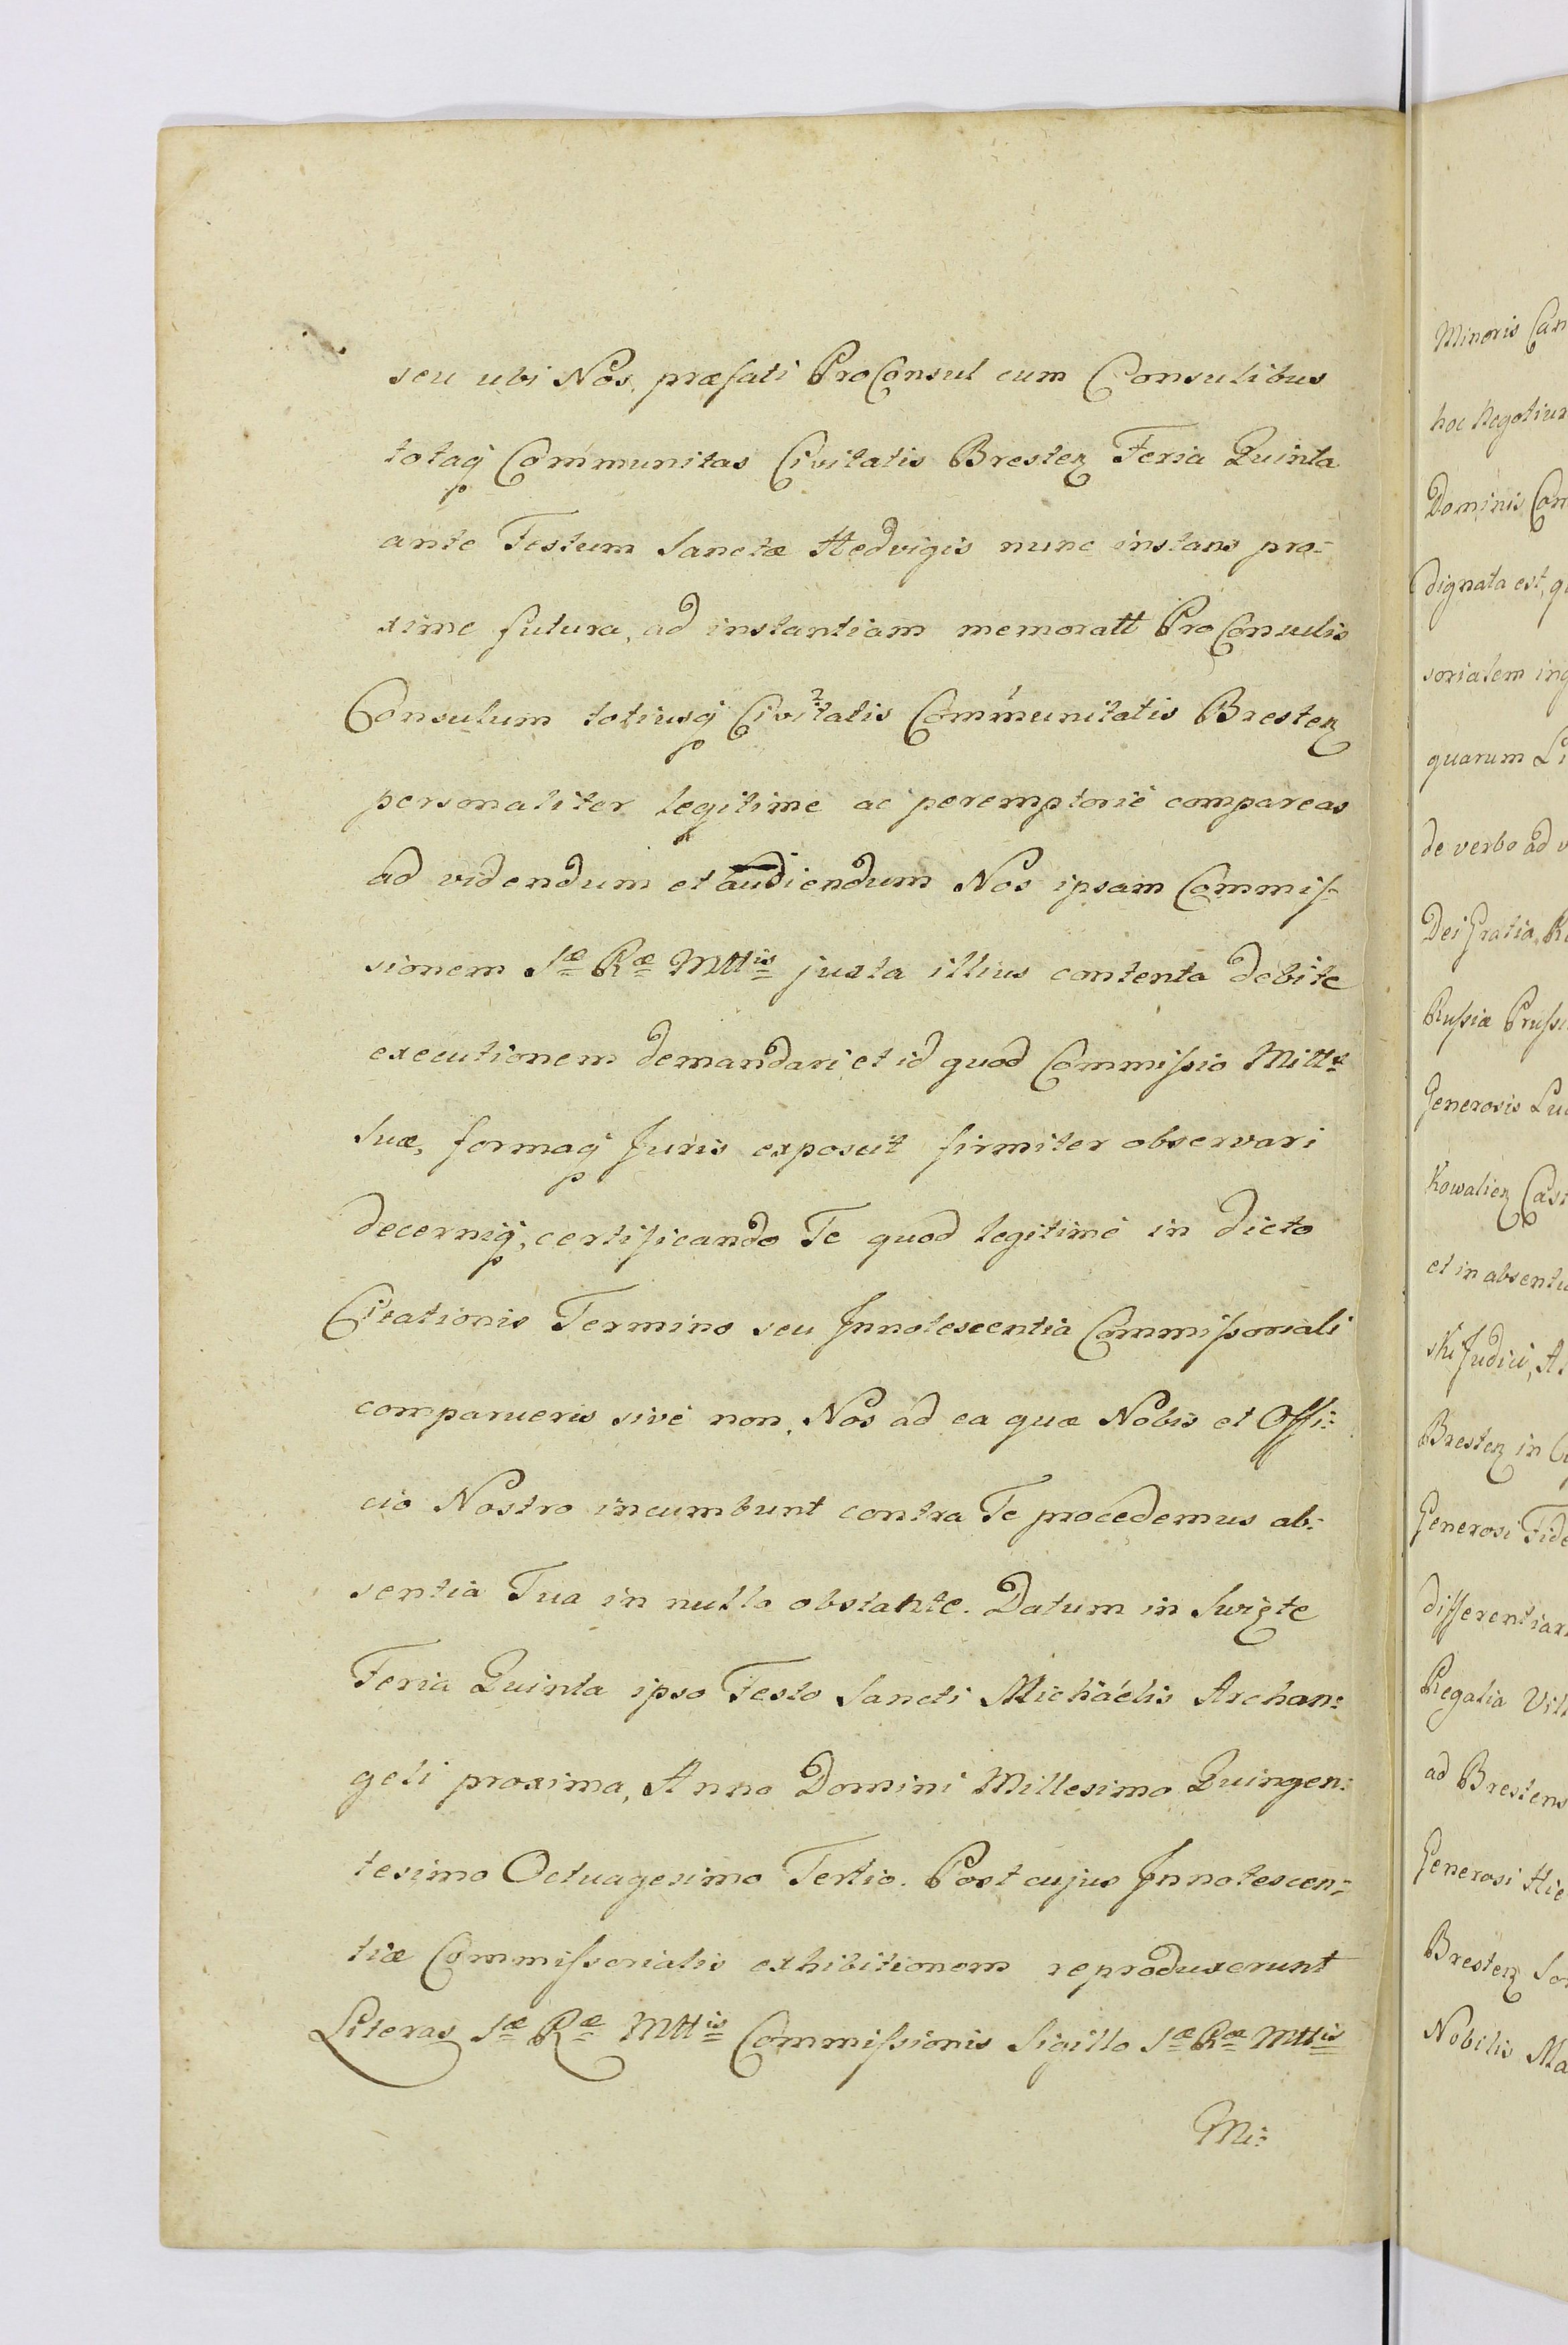 seu ubi Nos, præfati ProConsul cum Consulibus
totaq́ Communitas Civitatis Bresteɳ Feria Quinta
ante Festum Sanctæ Hedvigis nunc instans pro-
xime futura, ad instantiam memoratt ProConsulis
Consulum totiusq́ Civitatis Communitatis Bresteɳ
personaliter legitime ac peremptoriè compareas
ad videndum et audiendum Nos ipsam Commiſ-
sionem Sæ Ræ Mttis juxta illius contenta debite
executionem demandari et id quod Commiſsio Mitts
Suæ, formaq́ Juris exposcit firmiter observari
decerniq́, certificando Te quod legitimè in dicto
Citationis Termino seu Innotescentia Commiſsoriali
comparueris sivè non, Nos ad ea quæ Nobis et Offi-
cio Nostro incumbunt contra Te procedemus ab-
sentia Tua in nullo obstante. Datum in Swięte
Feria Quinta ipso Festo Sancti Michäelis Archan-
geli proxima, Anno Domini Millesimo Quingen-
tesimo Octuagesimo Tertio. Post cujus Innotescen-
tiæ Commiſsorialis exhibitionem reproduxerunt
Literas Sæ Ræ Mttis Commiſsionis Sigillo Sæ Ræ Mttis
Mi-
Minoris Can
hoc Negotium
Dominis Com
dignata est, q
sorialem in
quarum Li
de verbo ad v
Dei Gratia, R
Ruſsiæ Pruſsi
Generosis Lu
Kowalieɳ Cas
et in absenti
ski Judici, A
Bresteɳ in C
Generosi Fide
differentiar
Regalia Vill
ad Brestens
Generosi Hie
Bresteɳ Sor
Nobilis Ma